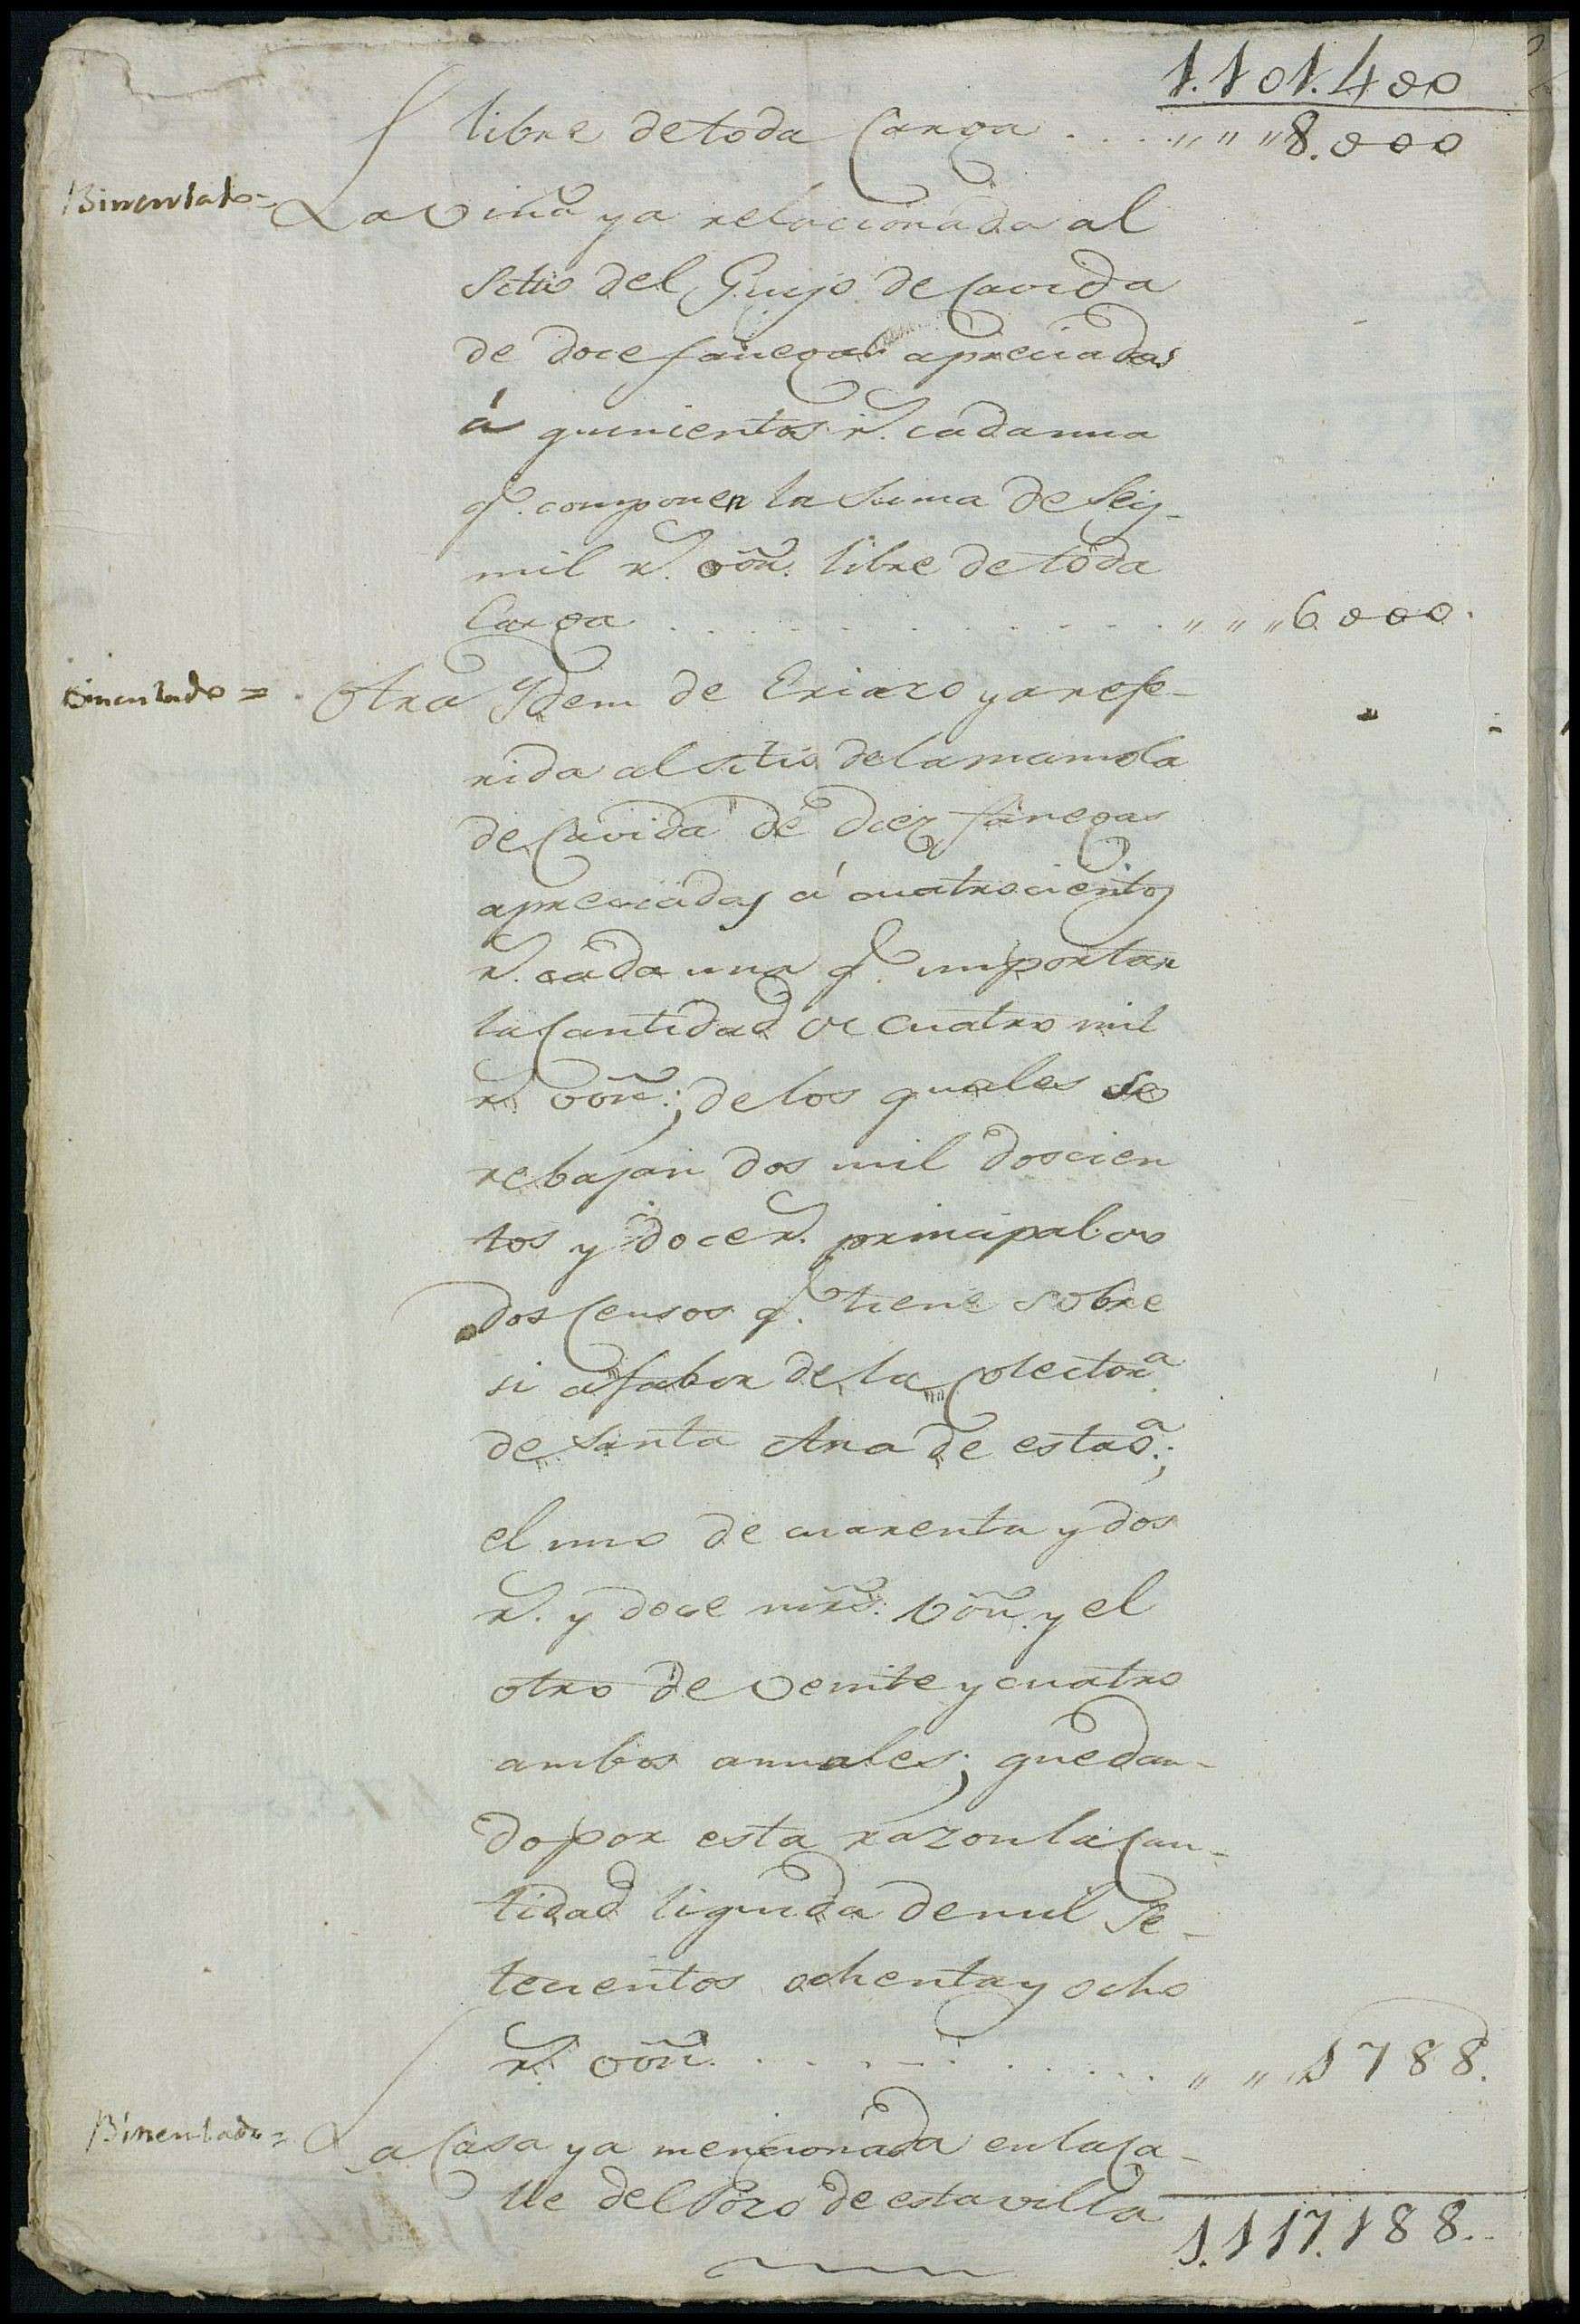 1.101.400
libre de toda Carga . . . . " " " 8.000
Binculado = La viña ya relacionada al
Sitio del Guijo de Cavida
de doce fanegas apreciadas
á quinientos r.s cada una
q.e componen la suma de Seis
mil r.s von. libre de toda
Carga . . . . . . . . . . " " " 6.000.
Binculado = Otra Ydem de Eriazo ya refe-
rida al sitio de la mamola
de Cavida de diez fanegas
apreciadas á cuatrocientos
r.s cada una q.e importan
la Cantidad de cuatro mil
r.s von.; de los quales se
rebajan dos mil doscien
tos y doce r.s principal de
dos Censos q.e tiene sobre
si a fabor de la Colector.a
de Santa Ana de esta v.a;
el uno de cuarenta y dos
r.s y doce mrs. von. y el
otro de veinte y cuatro
ambos annales; quedan-
do por esta razon la Can-
tidad liquida de mil Se-
tecientos ochenta y ocho
r.s von. . . . . . . . . " " " 1788.
Binculado = La Casa ya mencionada en la Ca-
lle del Pozo de esta villa
1.117.188..